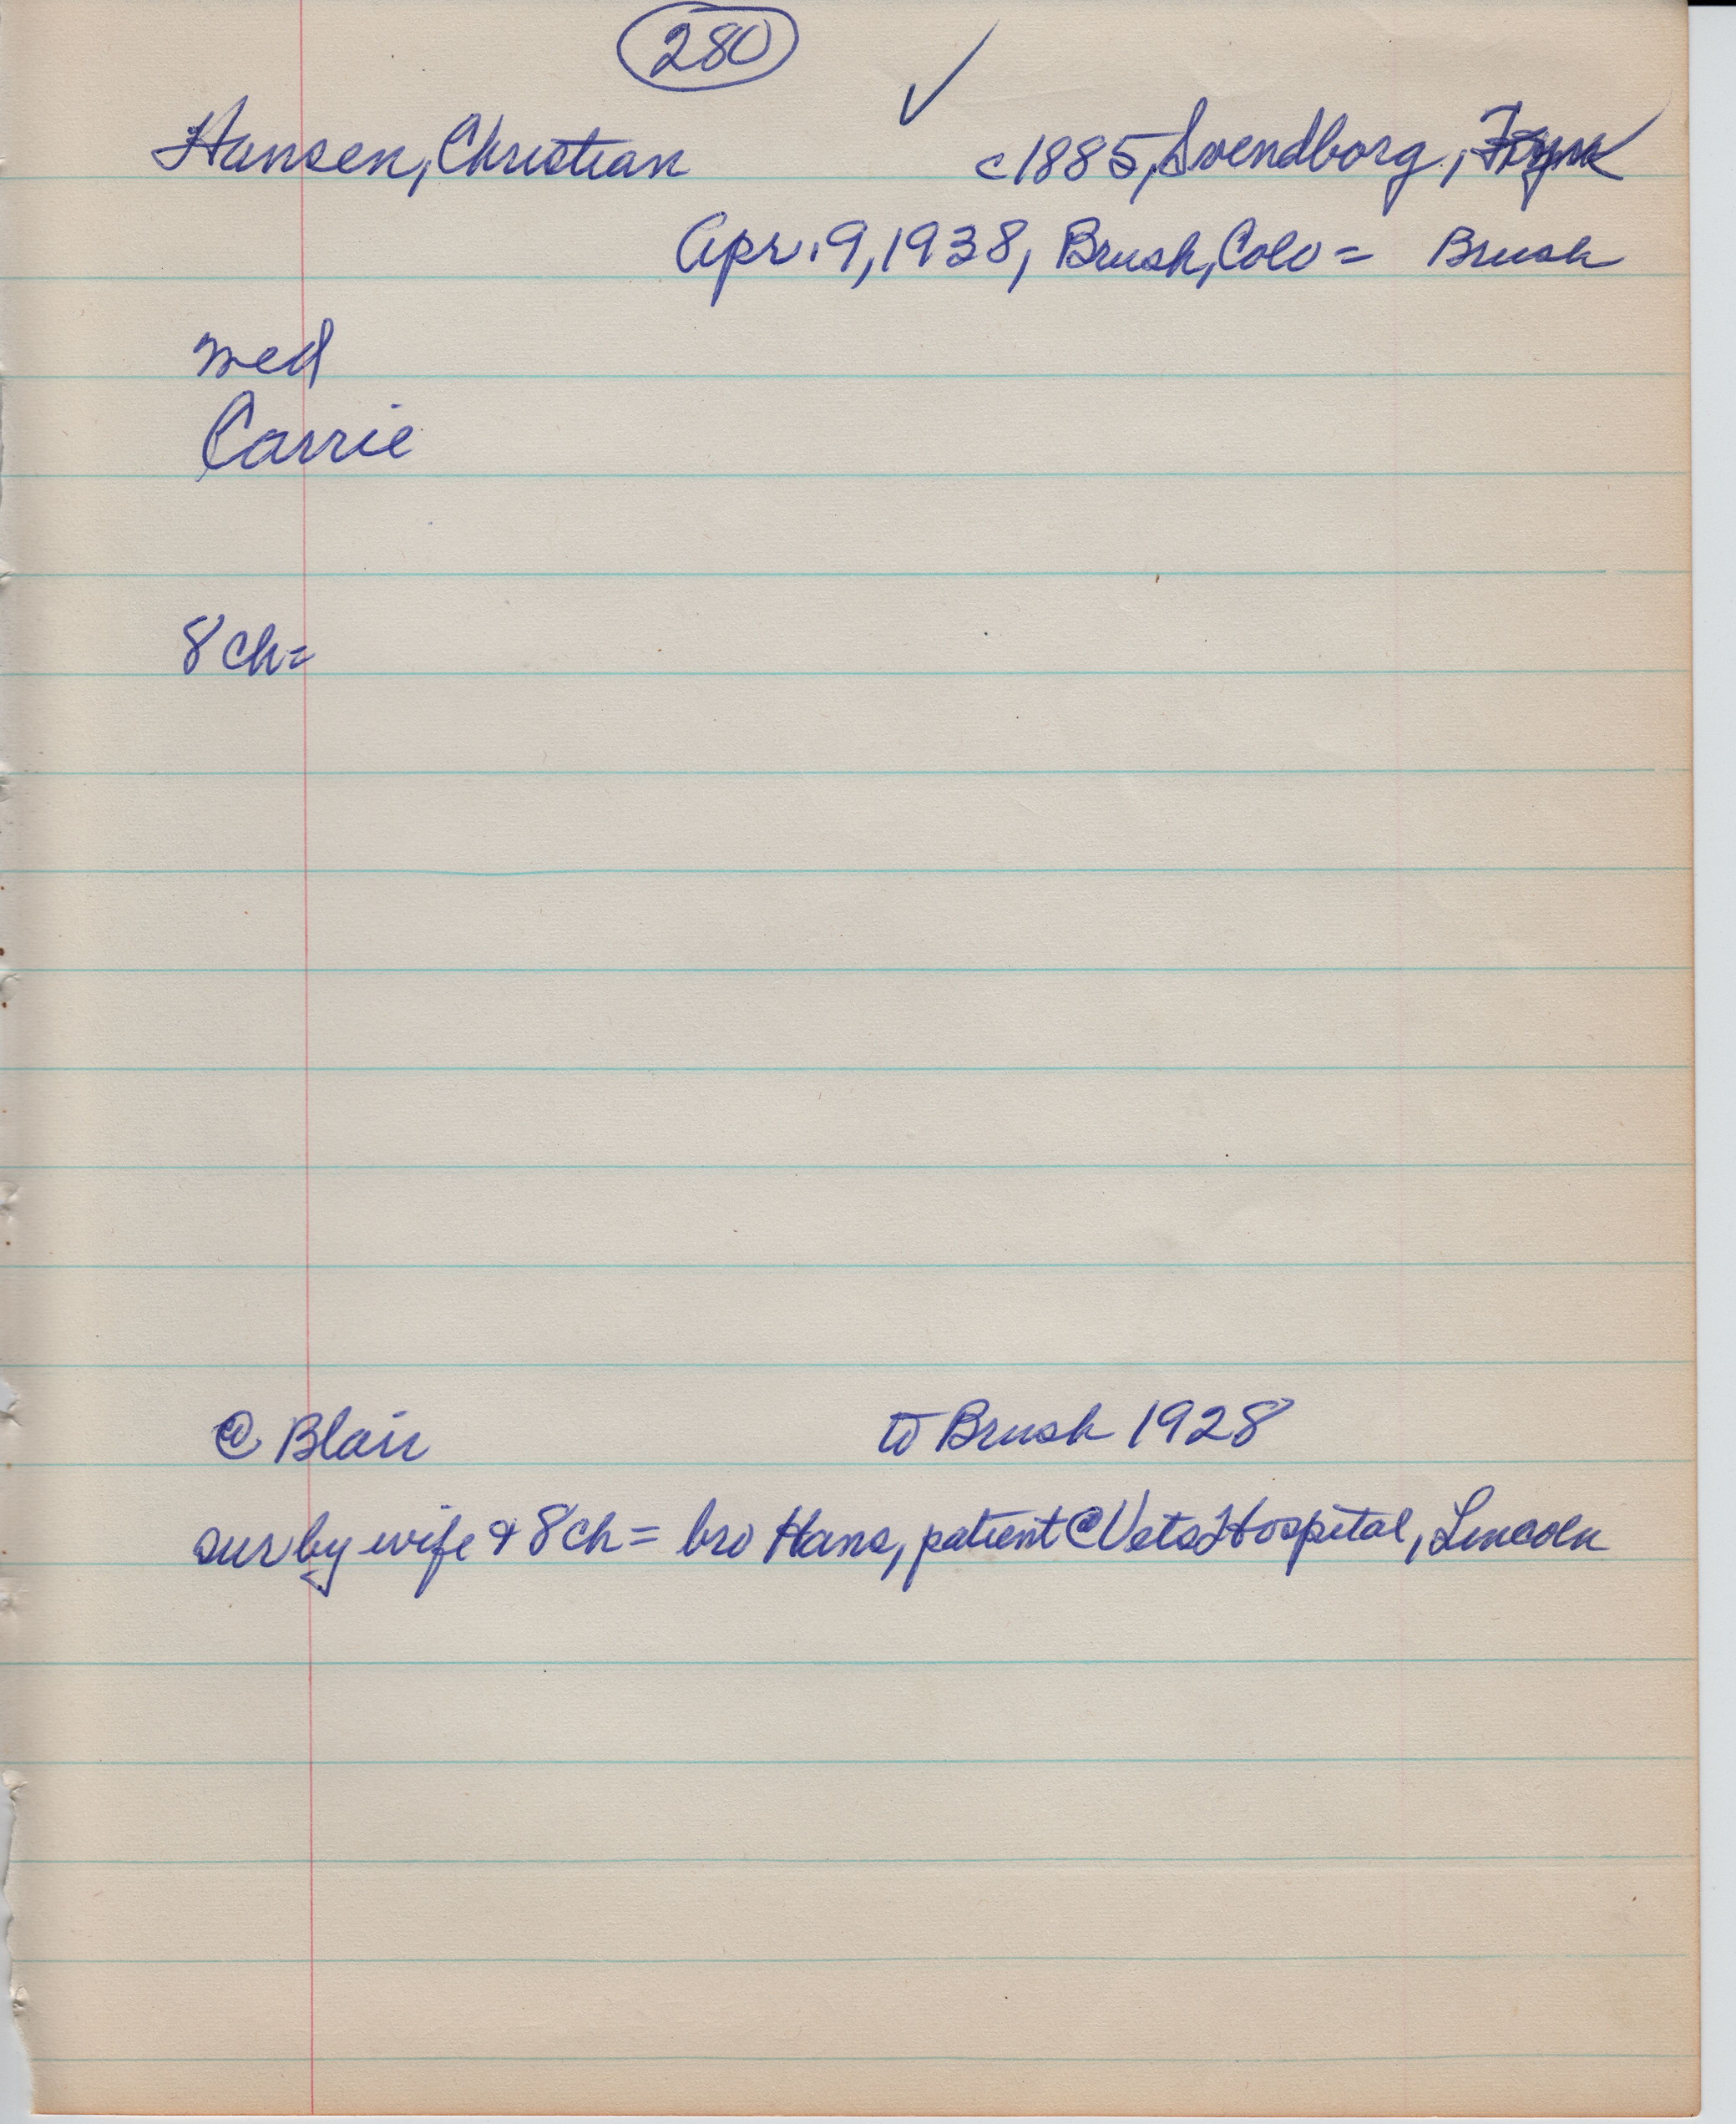 280 ✓
Hansen, Christian c1885, Svendborg, Fyn
Apr. 9, 1938, Brush, Colo = Brush
wed
Carrie
8 ch=
@ Blair to Brush 1928
sur by wife & 8 ch = bro Hans, patient @ Vets Hospital, Lincoln